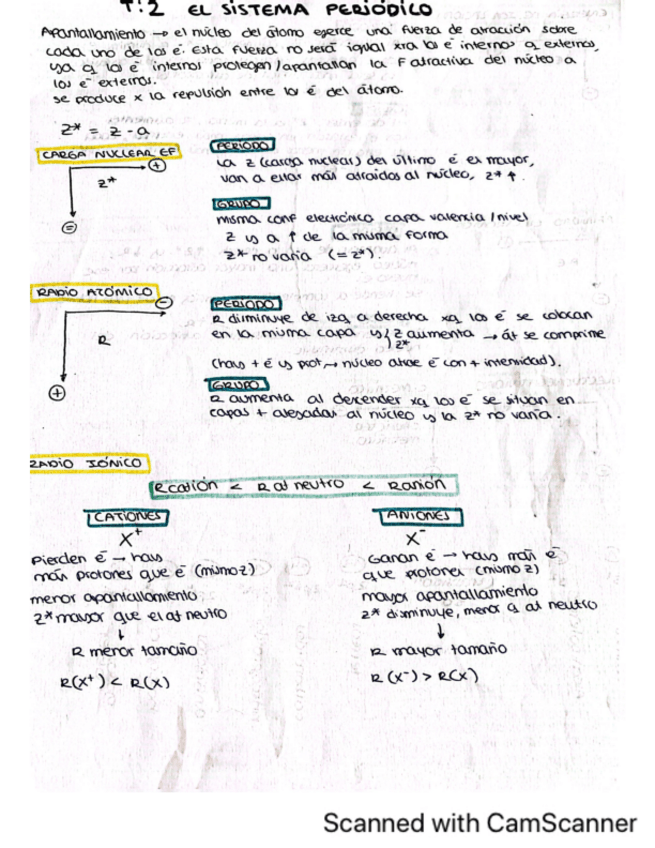 T:2 EL SISTEMA PERIÓDICO
Apantallamiento → el núcleo del átomo ejerce una fuerza de atracción sobre
cada uno de los e⁻. Esta fuerza no será igual xra los e⁻ internos q externos,
ya q los e⁻ internos protegen/apantallan la F atractiva del núcleo a
los e⁻ externos.
se produce x la repulsión entre los e⁻ del átomo.
Z* = Z - a
CARGA NUCLEAR EF
+
Z*
=
PERIODO
La Z (carga nuclear) del último e⁻ es mayor,
van a estar más atraidos al núcleo, Z* ↑.
GRUPO
misma conf electrónica capa valencia/nivel
Z y a ↑ de la misma forma
Z* no varía (= Z*).
RADIO ATÓMICO
-
R
+
PERIODO
R disminuye de izq a derecha xq los e⁻ se colocan
en la misma capa y { Z aumenta → át se comprime
Z*
(hay + e⁻ y prot → núcleo atrae e⁻ con + intensidad).
GRUPO
R aumenta al descender xq los e⁻ se situan en
capas + alejadas al núcleo y la Z* no varía.
RADIO IÓNICO
R catión < R at neutro < R anión
CATIONES
X⁺
Pierden e⁻ → hay
más protones que e⁻ (mismo z)
menor apantallamiento,
Z* mayor que el at neutro
↓
R menor tamaño
R(X⁺) < R(X)
ANIONES
X⁻
Ganan e⁻ → hay más e⁻
que protones (mismo z)
mayor apantallamiento
Z* disminuye, menor q at neutro
↓
R mayor tamaño
R(X⁻) > R(X)
Scanned with CamScanner